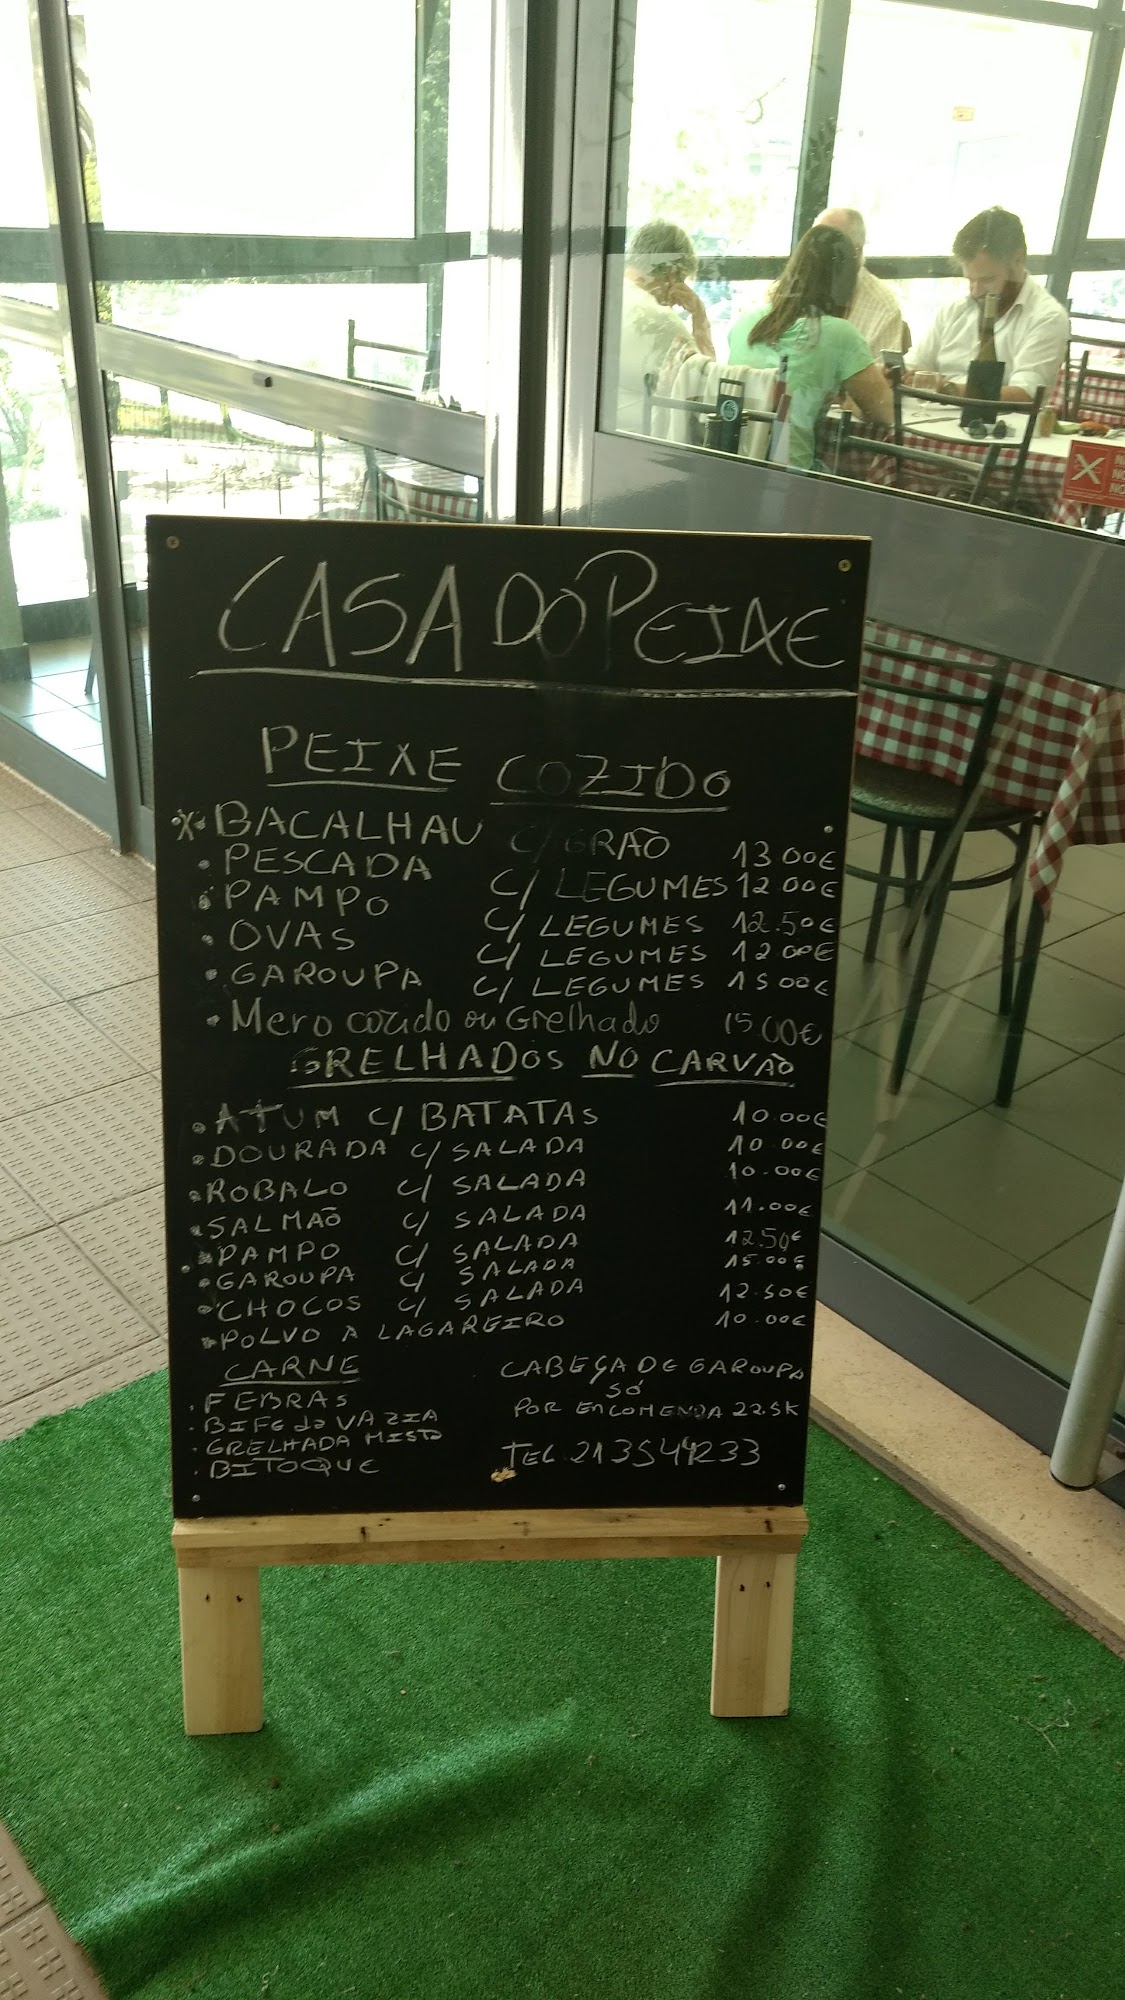 CASA DO PEIXE
PEIXE COZIDO
BACALHAU C/ GRÃO 13.00€
PESCADA C/ LEGUMES 12.00€
PAMPO C/ LEGUMES 12.50€
OVAS C/ LEGUMES 12.00€
GAROUPA C/ LEGUMES 15.00€
Mero cozido ou Grelhado 15.00€
GRELHADOS NO CARVÃO
ATUM C/ BATATAS 10.00€
DOURADA C/ SALADA 10.00€
ROBALO C/ SALADA 10.00€
SALMÃO C/ SALADA 11.00€
PAMPO C/ SALADA 12.50€
GAROUPA C/ SALADA 15.00€
CHOCOS C/ SALADA 12.50€
POLVO A LAGAREIRO 10.00€
CARNE
FEBRAS
BIFE da VAZIA
GRELHADA MISTA
BITOQUE
CABEÇA DE GAROUPA
SÓ
POR ENCOMENDA 22.5K
TEL. 213544233